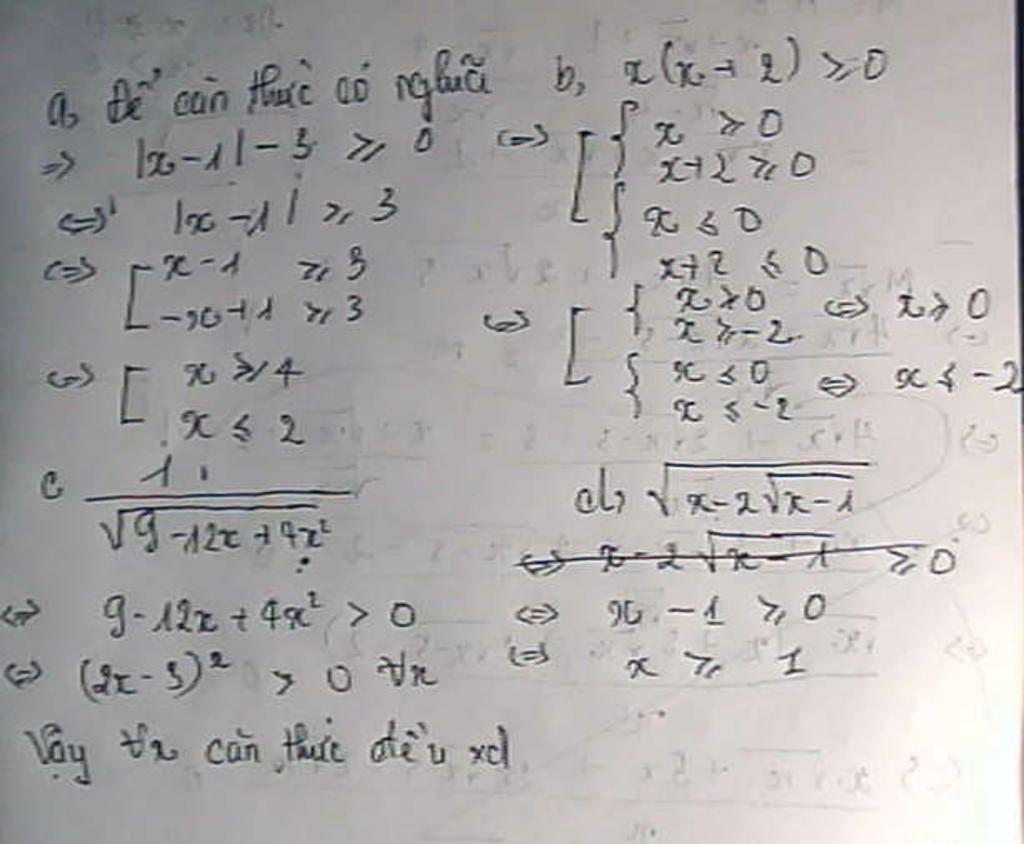 a, Để căn thức có nghĩa
=> |x-1| - 3 ≥ 0
<=> |x-1| ≥ 3
<=> [ x-1 ≥ 3
-x+1 ≥ 3
<=> [ x ≥ 4
x ≤ 2
b, x(x+2) ≥ 0
<=> [ { x ≥ 0
x+2 ≥ 0
{ x ≤ 0
x+2 ≤ 0
<=> [ { x ≥ 0 <=> x ≥ 0
x ≥ -2
{ x ≤ 0 <=> x ≤ -2
x ≤ -2
c 1
√9-12x+4x²
<=> 9-12x+4x² > 0
<=> (2x-3)² > 0 ∀x
Vậy ∀x căn thức đều xđ
d, √x-2√x-1
<=> x-2√x-1 ≥ 0
<=> x-1 ≥ 0
<=> x ≥ 1